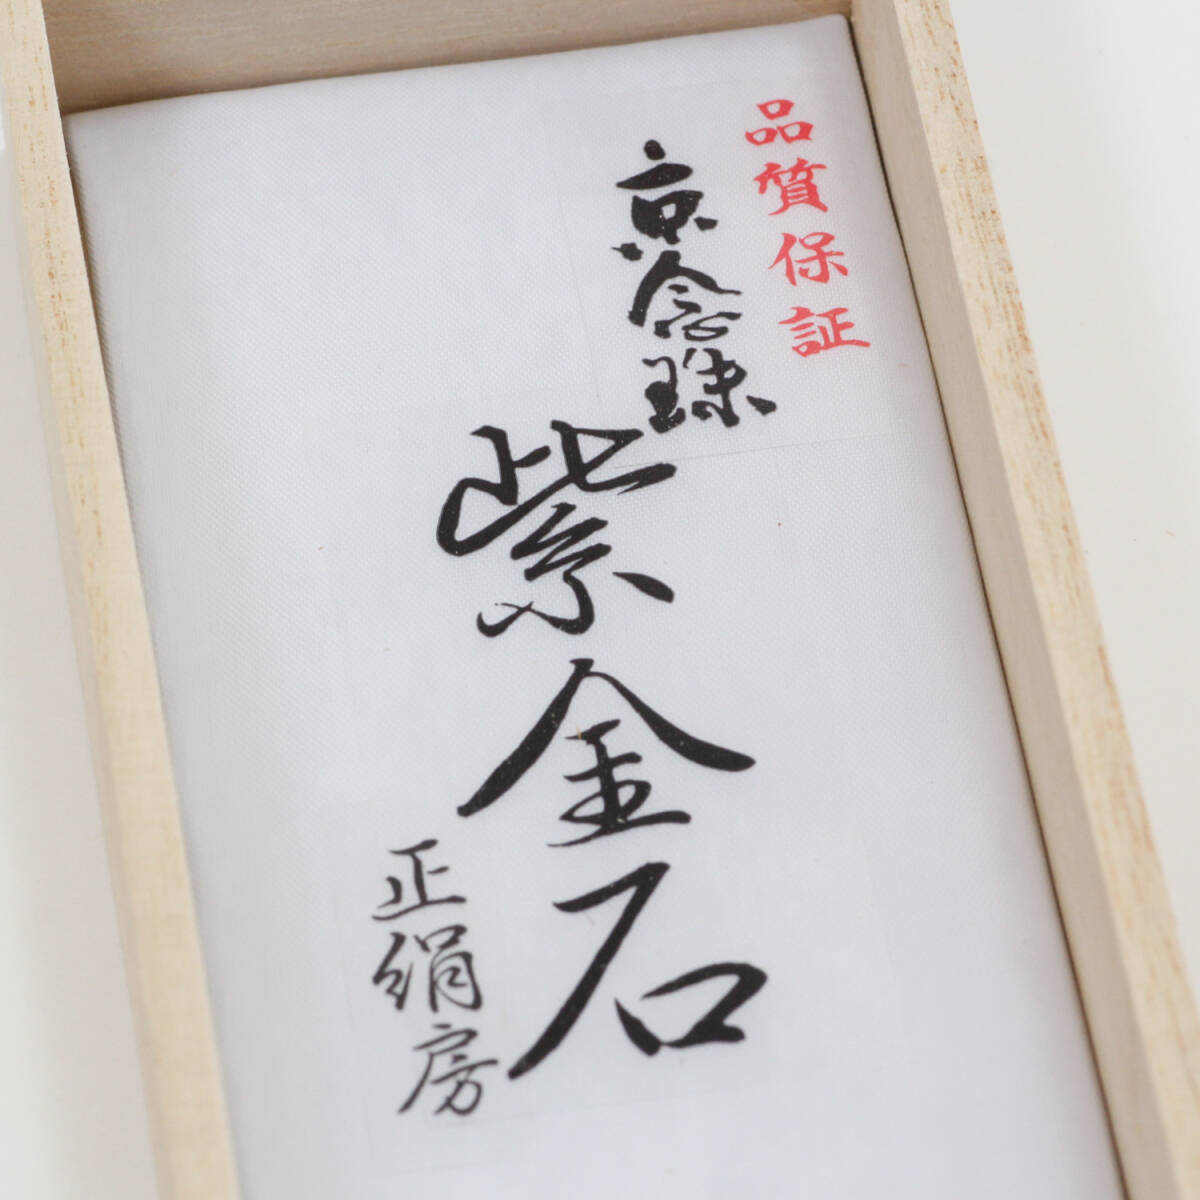 品質保証
京念珠
紫金石
正絹房